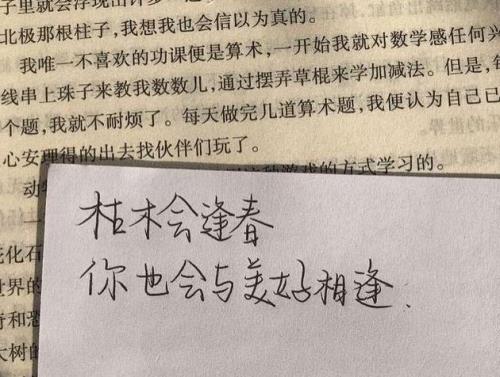 子里就会浮现出许多
北极那根柱子,我想我也会信以为真的。
我唯一不喜欢的功课便是算术,一开始我就对数学感任何兴
线串上珠子来教我数数儿,通过摆弄草根来学加减法。但是,每
个题,我就不耐烦了。每天做完几道算术题,我便认为自己已
心安理得的出去找伙伴们玩了。
动
的方式学习的。
枯木会逢春
你也会与美好相逢.
化石
世界的
奇和恐
大树的